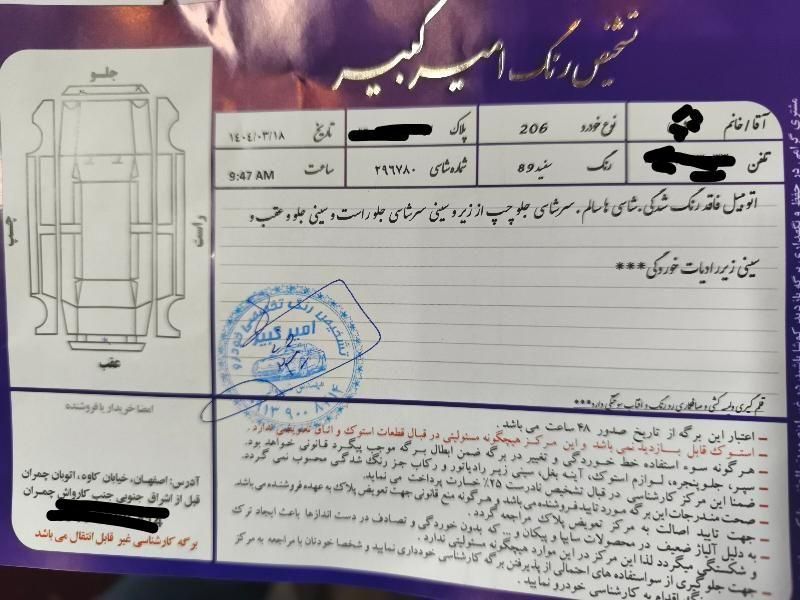 تشخیص رنگ امیر کبیر
آقا / خانم
نوع خودرو 206
پلاک
تاریخ ۱۴۰۴/۰۳/۱۸
تلفن
رنگ سفید 89
شماره شاسی ۲۹۶۷۸۰
ساعت 9:47 AM
جلو
راست
چپ
عقب
اتومبیل فاقد رنگ شدگی. شاسی ها سالم. سرشاسی جلو چپ از زیر و سینی سرشاسی جلو راست و سینی جلو و عقب و
سینی زیر رادیات خوردگی***
تشخیص رنگ تخصصی خودرو
امیر کبیر
قلم گیری و لیسه کشی و صافکاری بدون رنگ و آفتاب سوختگی دارد***
امضا خریدار یا فروشنده
آدرس: اصفهان، خیابان کاوه، اتوبان چمران
قبل از اشراق جنوبی جنب کارواش چمران
برگه کارشناسی غیر قابل انتقال می باشد
– اعتبار این برگه از تاریخ صدور ۴۸ ساعت می باشد
– استوک قابل بازدید نمی باشد و این مرکز هیچگونه مسئولیتی در قبال قطعات استوک و اتاق تعویضی ندارد.
– هرگونه سوء استفاده خط خوردگی و تغییر در برگه ضمن ابطال برگه موجب پیگرد قانونی خواهد بود.
– سپر، جلوپنجره، لوازم استوک، آینه بغل، سینی زیر رادیاتور و رکاب جز رنگ شدگی محسوب نمی گردد.
– ضمنا این مرکز کارشناسی در قبال تشخیص نادرست ۲۵٪ خسارت پرداخت می نماید.
– صحت مندرجات این برگه مورد تایید فروشنده می باشد و هرگونه منع قانونی جهت تعویض پلاک به عهده فروشنده می باشد.
– جهت تایید اصالت به مرکز تعویض پلاک مراجعه گردد.
– به دلیل آلیاژ ضعیف در محصولات سایپا و پیکان و ... که بدون خوردگی و تصادف در دست اندازها باعث ایجاد ترک
و شکستگی میگردد لذا این مرکز در این موارد هیچگونه مسئولیتی ندارد.
– جهت جلوگیری از سواستفاده های احتمالی از پذیرفتن برگه کارشناسی خودداری نمایید و شخصا خودتان با مراجعه به مرکز
اقدام به کارشناسی خودرو نمایید.